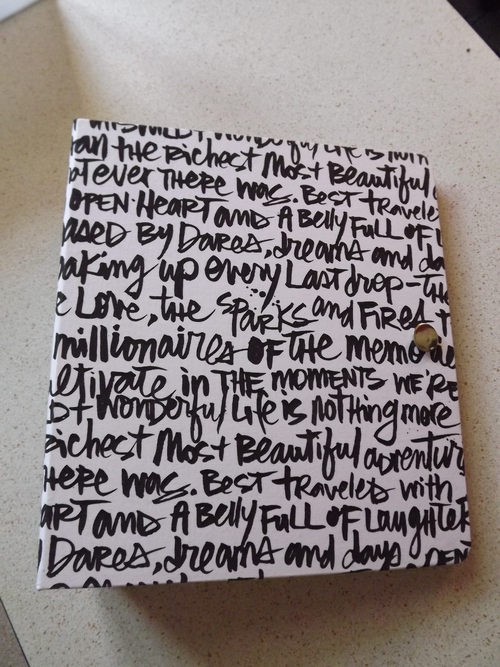 wonderful life is noth
an the Richest Most Beautiful
atever there was. Best travele
OPEN HEART and A Belly Full OF L
ased By Dares, dreams and da
aking up every Last drop-the
e Love, the sparks and Fires t
millionaires OF the memo
ltivate in THE MOMENTS WE'RE
D+ Wonderful Life is nothing more
Richest Most Beautiful adventur
Here was. Best traveled with
ART and A Belly Full OF Laughter
Dares, dreams and days